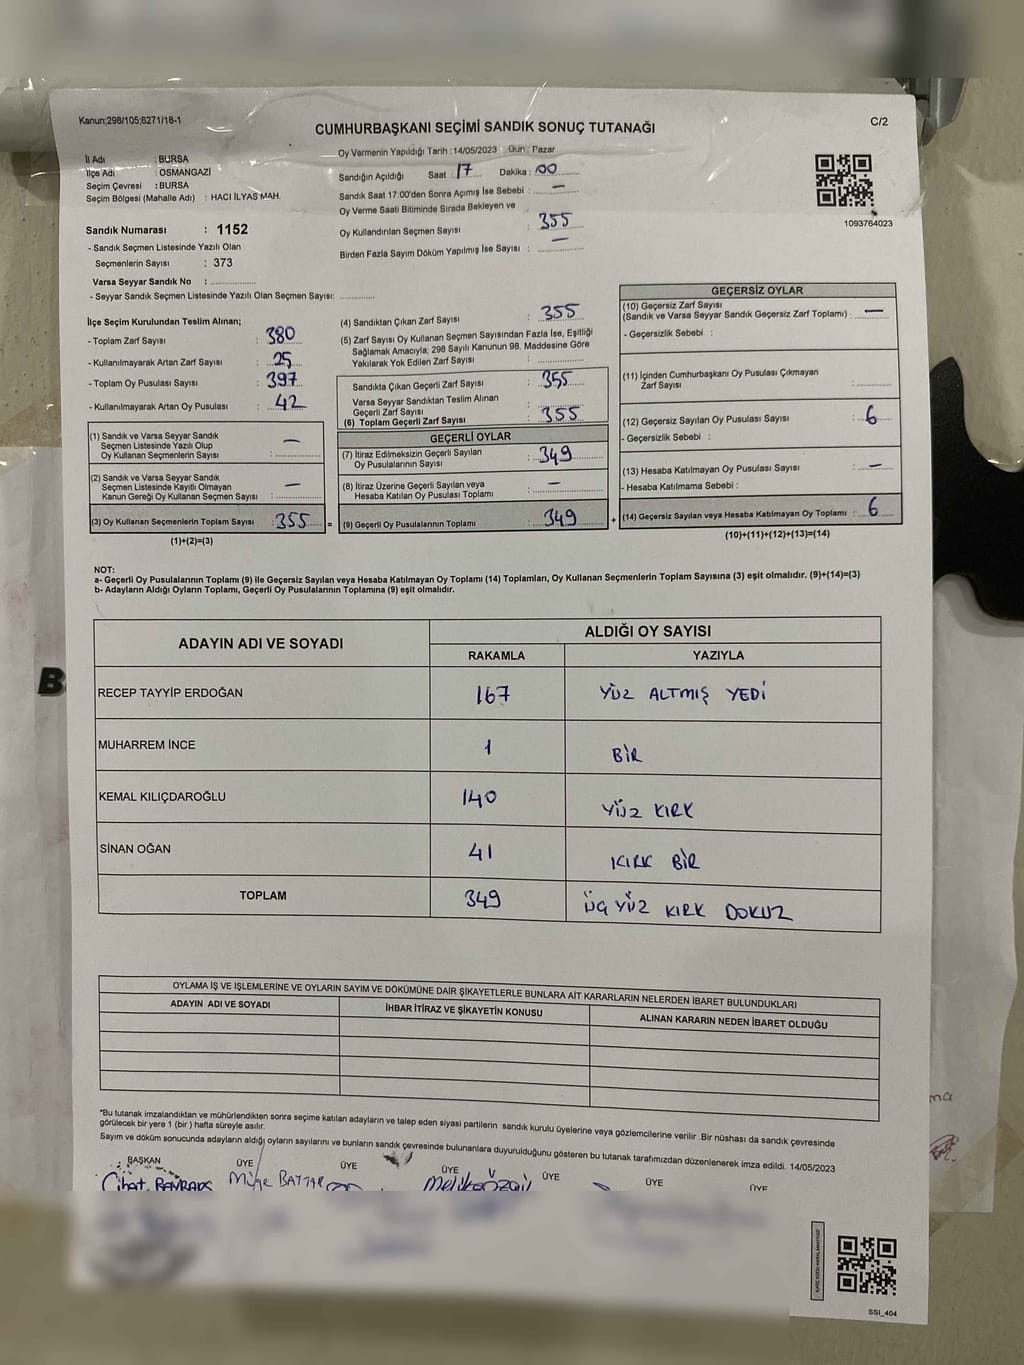 Kanun;298/105;6271/18-1
C/2
CUMHURBAŞKANI SEÇİMİ SANDIK SONUÇ TUTANAĞI
İl Adı : BURSA
İlçe Adı : OSMANGAZİ
Seçim Çevresi : BURSA
Seçim Bölgesi (Mahalle Adı) : HACI İLYAS MAH.
Oy Vermenin Yapıldığı Tarih :14/05/2023 Gün : Pazar
Sandığın Açıldığı Saat : 17 Dakika : 00
Sandık Saat 17.00'den Sonra Açımış İse Sebebi : —
Oy Verme Saati Bitiminde Sırada Bekleyen ve
Oy Kullandırılan Seçmen Sayısı : 355
Birden Fazla Sayım Döküm Yapılmış İse Sayısı : —
1093764023
Sandık Numarası : 1152
- Sandık Seçmen Listesinde Yazılı Olan
Seçmenlerin Sayısı : 373
Varsa Seyyar Sandık No :
- Seyyar Sandık Seçmen Listesinde Yazılı Olan Seçmen Sayısı:
İlçe Seçim Kurulundan Teslim Alınan;
- Toplam Zarf Sayısı : 380
- Kullanılmayarak Artan Zarf Sayısı : 25
- Toplam Oy Pusulası Sayısı : 397
- Kullanılmayarak Artan Oy Pusulası : 42
(1) Sandık ve Varsa Seyyar Sandık
Seçmen Listesinde Yazılı Olup
Oy Kullanan Seçmenlerin Sayısı : —
(2) Sandık ve Varsa Seyyar Sandık
Seçmen Listesinde Kayıtlı Olmayan
Kanun Gereği Oy Kullanan Seçmen Sayısı : —
(3) Oy Kullanan Seçmenlerin Toplam Sayısı : 355 =
(1)+(2)=(3)
(4) Sandıktan Çıkan Zarf Sayısı : 355
(5) Zarf Sayısı Oy Kullanan Seçmen Sayısından Fazla İse, Eşitliği
Sağlamak Amacıyla, 298 Sayılı Kanunun 98. Maddesine Göre
Yakılarak Yok Edilen Zarf Sayısı :
Sandıkta Çıkan Geçerli Zarf Sayısı : 355
Varsa Seyyar Sandıktan Teslim Alınan
Geçerli Zarf Sayısı :
(6) Toplam Geçerli Zarf Sayısı : 355
GEÇERLİ OYLAR
(7) İtiraz Edilmeksizin Geçerli Sayılan
Oy Pusulalarının Sayısı : 349
(8) İtiraz Üzerine Geçerli Sayılan veya
Hesaba Katılan Oy Pusulası Toplamı : —
(9) Geçerli Oy Pusulalarının Toplamı : 349 +
GEÇERSİZ OYLAR
(10) Geçersiz Zarf Sayısı
(Sandık ve Varsa Seyyar Sandık Geçersiz Zarf Toplamı) : —
- Geçersizlik Sebebi :
(11) İçinden Cumhurbaşkanı Oy Pusulası Çıkmayan
Zarf Sayısı :
(12) Geçersiz Sayılan Oy Pusulası Sayısı : 6
- Geçersizlik Sebebi :
(13) Hesaba Katılmayan Oy Pusulası Sayısı : —
- Hesaba Katılmama Sebebi :
(14) Geçersiz Sayılan veya Hesaba Katılmayan Oy Toplamı : 6
(10)+(11)+(12)+(13)=(14)
NOT:
a- Geçerli Oy Pusulalarının Toplamı (9) ile Geçersiz Sayılan veya Hesaba Katılmayan Oy Toplamı (14) Toplamları, Oy Kullanan Seçmenlerin Toplam Sayısına (3) eşit olmalıdır. (9)+(14)=(3)
b- Adayların Aldığı Oyların Toplamı, Geçerli Oy Pusulalarının Toplamına (9) eşit olmalıdır.
ADAYIN ADI VE SOYADI ALDIĞI OY SAYISI
RAKAMLA YAZIYLA
RECEP TAYYİP ERDOĞAN 167 YÜZ ALTMIŞ YEDİ
MUHARREM İNCE 1 BİR
KEMAL KILIÇDAROĞLU 140 YÜZ KIRK
SİNAN OĞAN 41 KIRK BİR
TOPLAM 349 ÜÇ YÜZ KIRK DOKUZ
OYLAMA İŞ VE İŞLEMLERİNE VE OYLARIN SAYIM VE DÖKÜMÜNE DAİR ŞİKAYETLERLE BUNLARA AİT KARARLARIN NELERDEN İBARET BULUNDUKLARI
ADAYIN ADI VE SOYADI İHBAR İTİRAZ VE ŞİKAYETİN KONUSU ALINAN KARARIN NEDEN İBARET OLDUĞU
*Bu tutanak imzalandıktan ve mühürlendikten sonra seçime katılan adayların ve talep eden siyasi partilerin sandık kurulu üyelerine veya gözlemcilerine verilir .Bir nüshası da sandık çevresinde
görülecek bir yere 1 (bir ) hafta süreyle asılır.
Sayım ve döküm sonucunda adayların aldığı oyların sayılarını ve bunların sandık çevresinde bulunanlara duyurulduğunu gösteren bu tutanak tarafımızdan düzenlenerek imza edildi. 14/05/2023
BAŞKAN ÜYE ÜYE ÜYE ÜYE ÜYE ÜYE
B
SSI_404